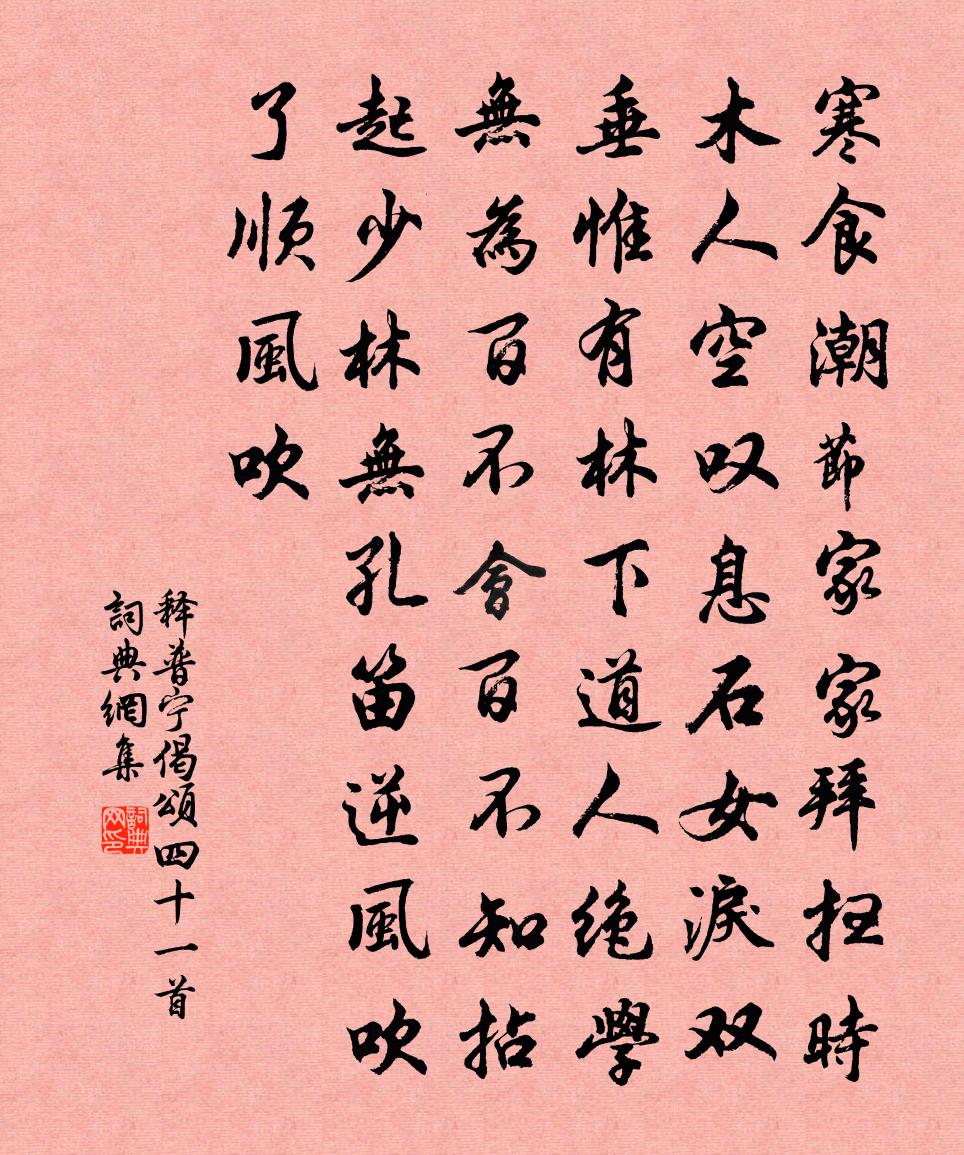 寒食潮節家家拜扫時
木人空叹息石女淚双
垂惟有林下道人绝學
無為百不會百不知拈
起少林無孔笛逆風吹
了顺風吹
释普宁偈頌四十一首
詞典網集
詞典网印